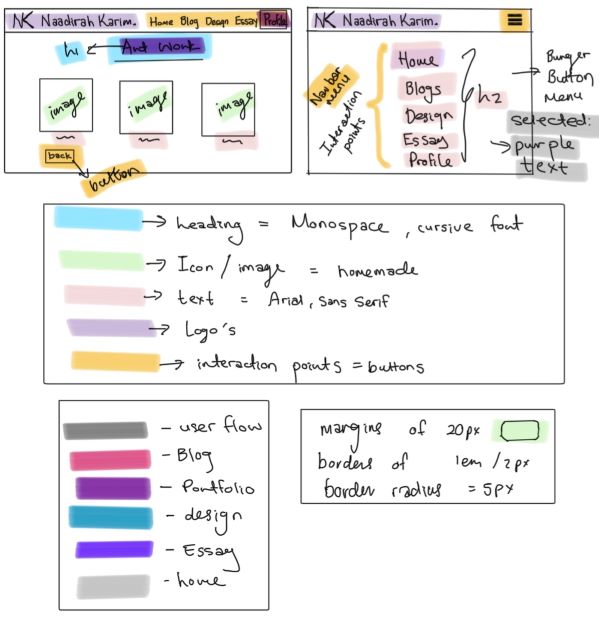 NK Naadirah Karim. Home Blog Design Essay Profile
h1 Art Work
image image image
back
button
NK Naadirah Karim.
Navbar menu
Interaction points
Home
Blogs
Design
Essay
Profile
h2
Burger
Button
Menu
selected:
purple
text
heading = Monospace, cursive font
Icon / image = homemade
text = Arial, sans serif
Logo's
interaction points = buttons
- user flow
- Blog
- Portfolio
- design
- Essay
- home
margins of 20px
borders of 1em / 2px
border radius = 5px